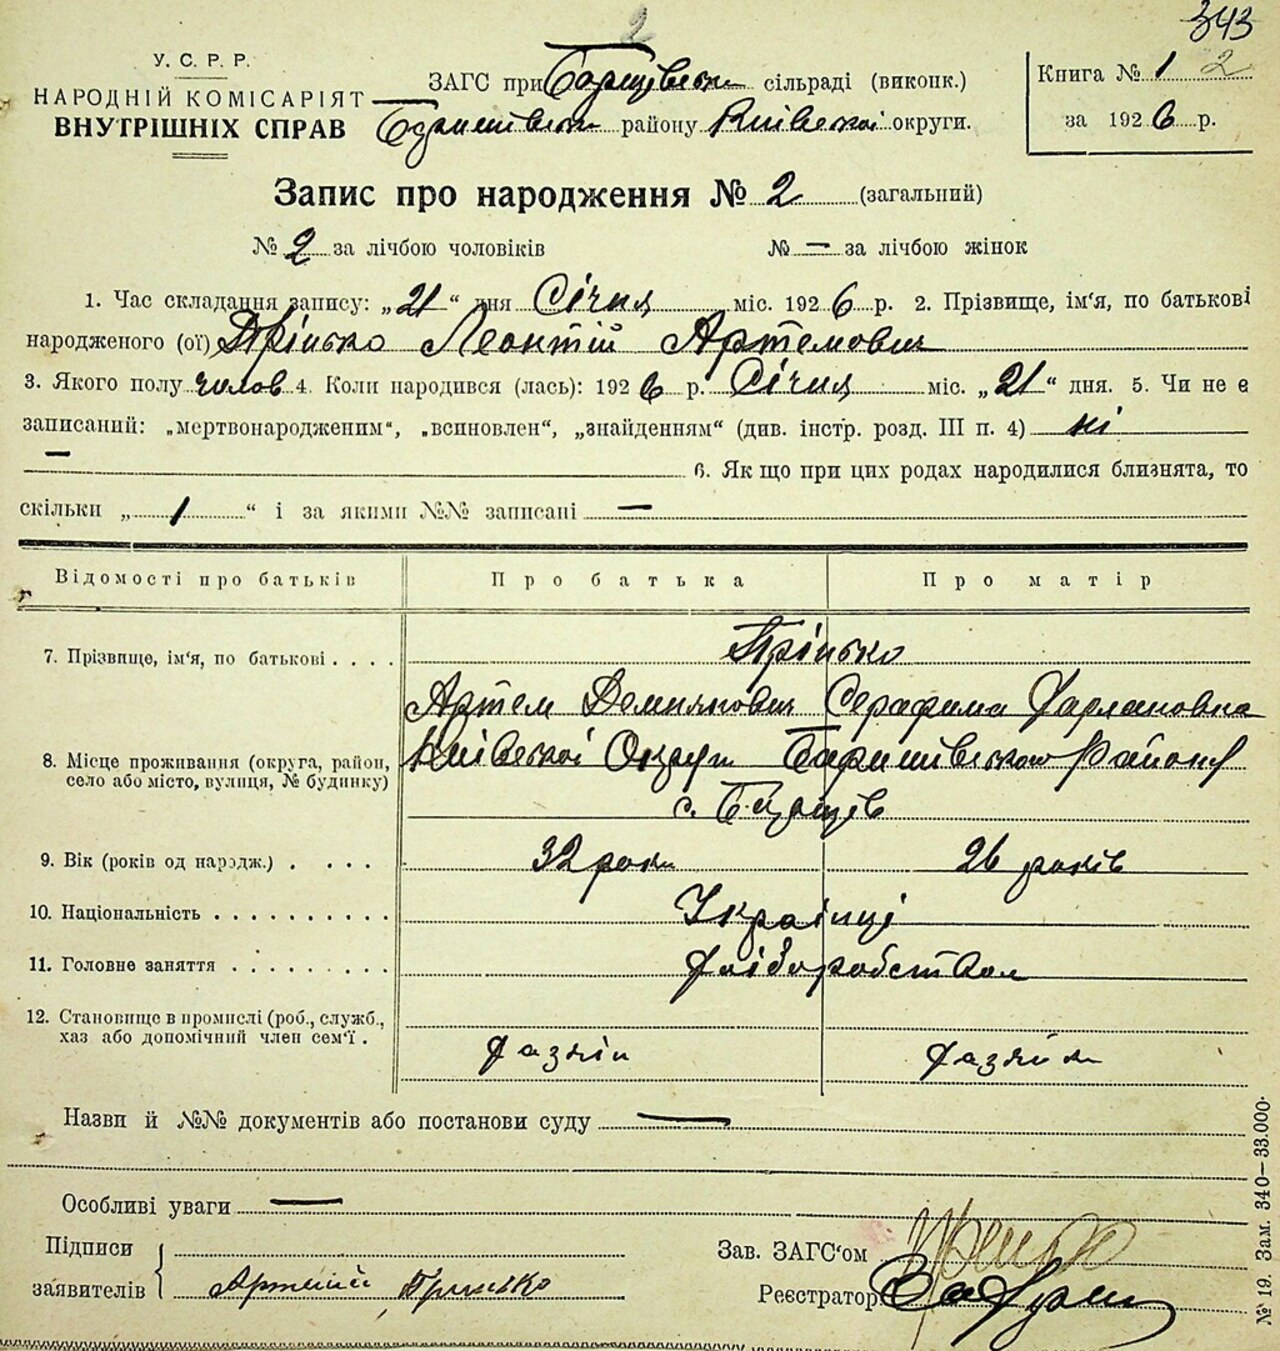 343
2
У. С. Р. Р.
НАРОДНІЙ КОМІСАРІЯТ
ВНУТРІШНІХ СПРАВ
ЗАГС при сільраді (виконк.)
району Київської округи.
Книга № 1 2
за 1926 р.
Запис про народження № 2 (загальний)
№ 2 за лічбою чоловіків № — за лічбою жінок
1. Час складання запису: „21“ дня Січня міс. 1926 р. 2. Прізвище, ім'я, по батькові
народженого (ої) Грінько Леонтій Артемович
3. Якого полу чолов 4. Коли народився (лась): 1926 р. Січня міс. „21“ дня. 5. Чи не є
записаний: „мертвонародженим“, „всиновлен“, „знайденням“ (див. інстр. розд. III п. 4) ні
— 6. Як що при цих родах народилися близнята, то
скільки „1“ і за якими №№ записані —
Відомості про батьків Про батька Про матір
7. Прізвище, ім'я, по батькові . . . . Грінько
Артем Демянович Серафима Харлановна
8. Місце проживання (округа, район, село або місто, вулиця, № будинку) Київської Округи Баришівського Району
с.
9. Вік (років од народж.) . . . . 32 роки 26 років
10. Національність . . . . . . . . . . Українці
11. Головне заняття . . . . . . . . . Хліборобством
12. Становище в промислі (роб., служб.,
хаз або допомічний член сем'ї . Хазяїн Хазяйка
Назви й №№ документів або постанови суду —
Особливі уваги —
Підписи
заявителів Грінько
Зав. ЗАГС'ом
Реєстратор
№ 19. Зам. 340—33.000.